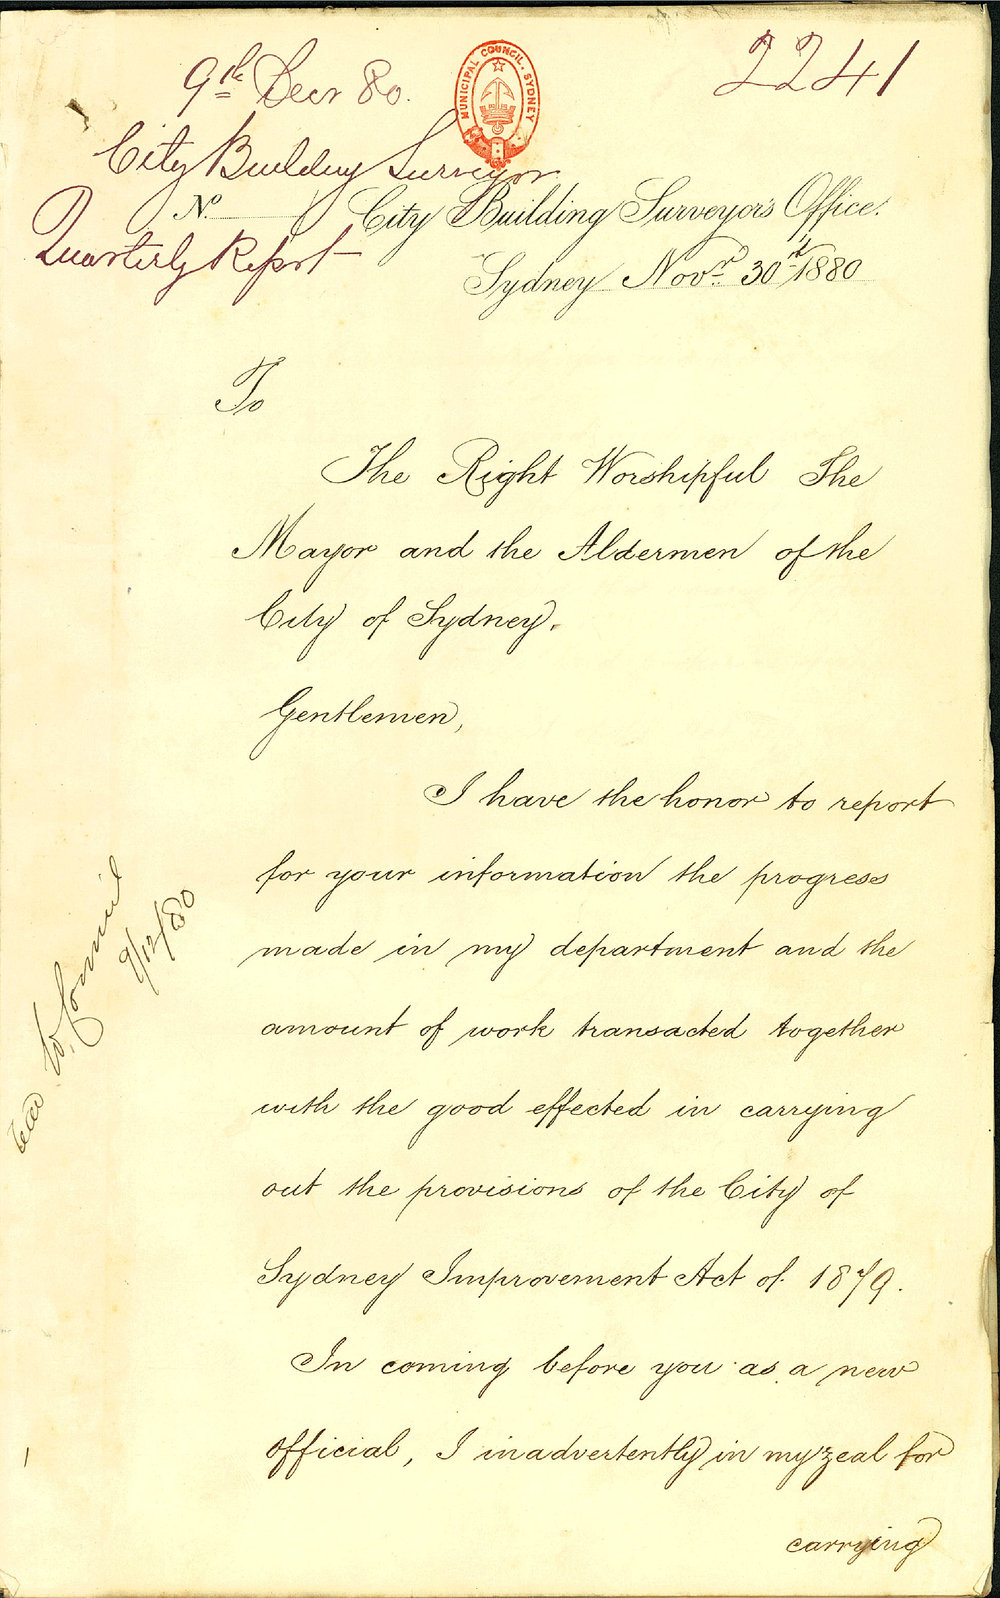 9th Decr 80.
2241
MUNICIPAL COUNCIL. SYDNEY
City Building Surveyor
Quarterly Report
No.
City Building Surveyor's Office.
Sydney Novr. 30th 1880
To
The Right Worshipful The
Mayor and the Aldermen of the
City of Sydney.
Gentlemen,
I have the honor to report
for your information the progress
made in my department and the
amount of work transacted together
with the good effected in carrying
out the provisions of the City of
Sydney Improvement Act of 1879.
In coming before you as a new
official, I inadvertently in my zeal for
carrying
to Council
9/12/80